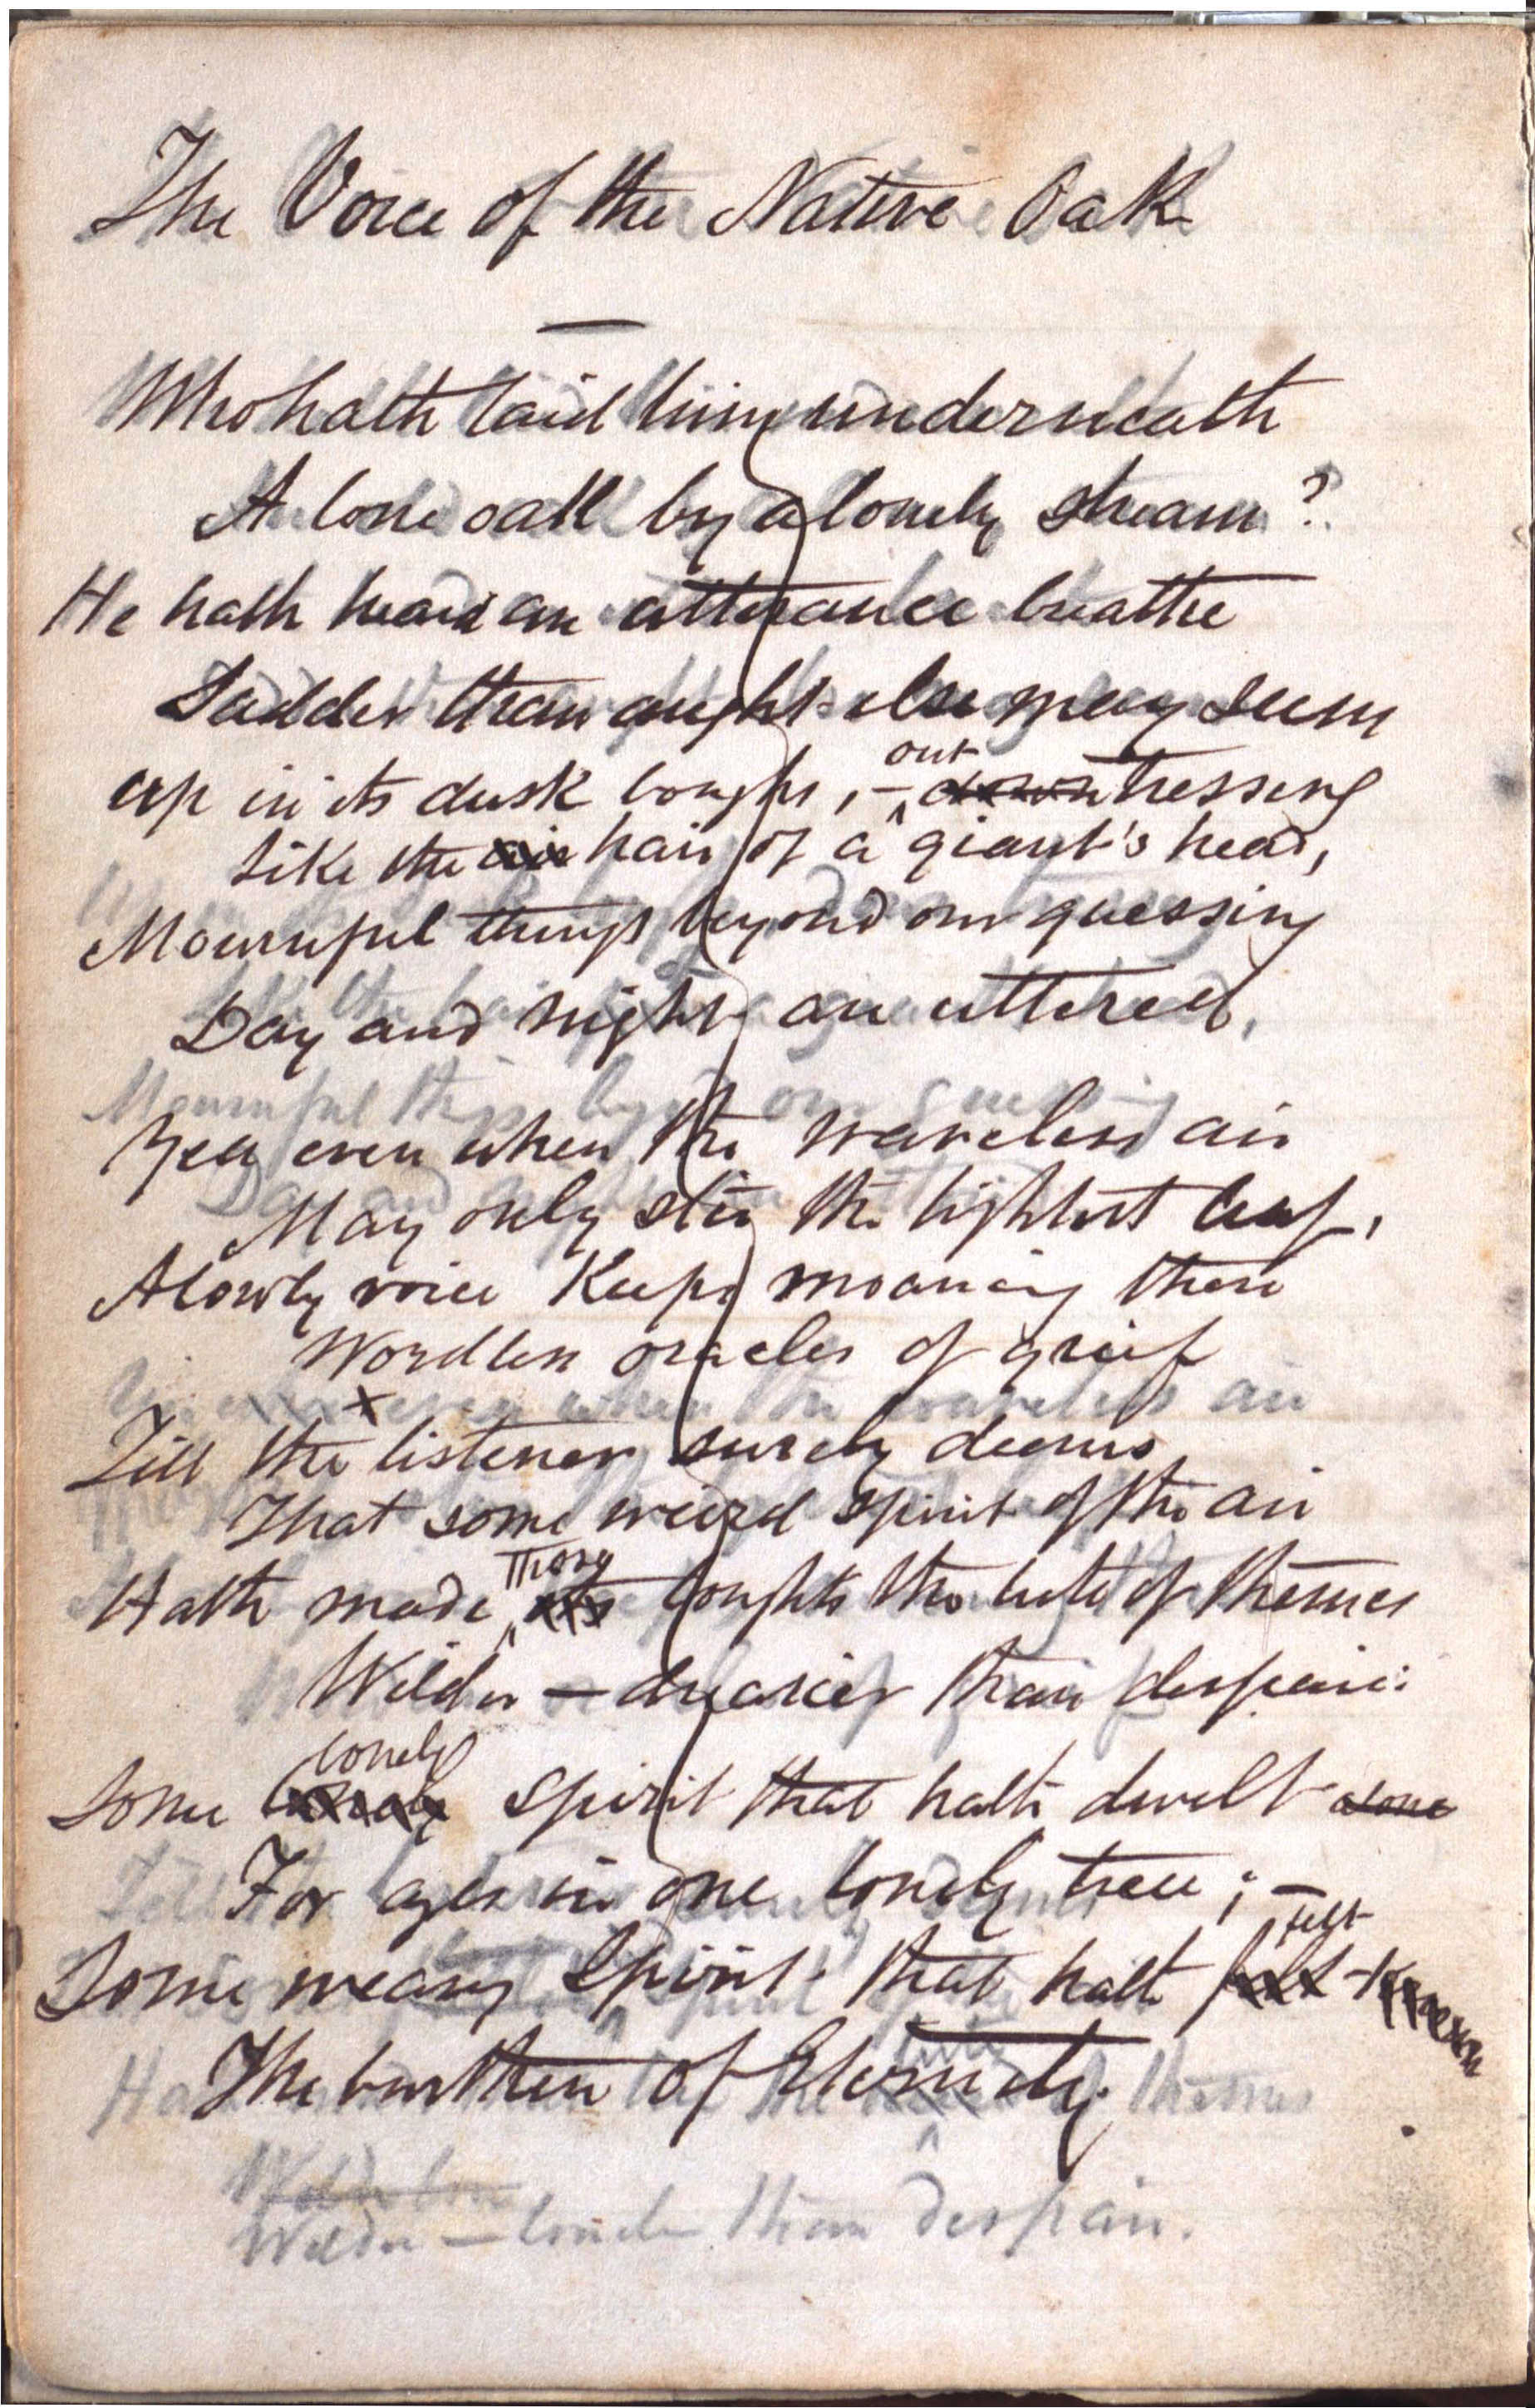 The Voice of the Native Oak
Who hath laid him underneath
A lone oak by a lonely stream?
He hath heard an utterance breathe
Sadder than aught else may seem
out
Up in its dusk boughs, – down tressing
Like the air hair of a giant's head,
Mournful things beyond our guessing
Day and night are uttered,
Mournful things beyond our guessing
Yea even when the waveless air
Day and night
May only stir the lightest leaf,
A lowly voice keeps moaning there
Wordless oracles of grief
even when the waveless air
Till the listener surely deems
That some weird spirit of the air
Those
Hath made its boughs the lute of themes
Wilder — drearier than despair:
lonely
Some lonely spirit that hath dwelt alone
For ages in one lonely tree; –
felt
Some weary Spirit that hath felt known
The burthen of Eternity.
lute
themes
Wilder
Wilder — than despair.